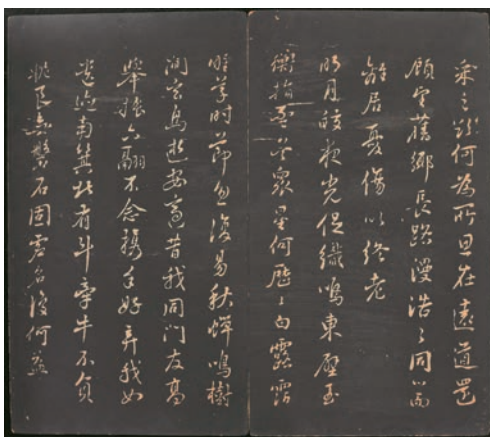 采之欲何為所思在遠道還
顧望舊鄉長路漫浩〻同心而
離居憂傷以終老
明月皎夜光促織鳴東壁玉
衡指孟冬衆星何歷〻白露霑
野草時節忽復易秋蟬鳴樹
間玄鳥逝安適昔我同門友高
舉振六翮不念攜手好棄我如
遺跡南箕北有斗牽牛不負
軛良無盤石固虛名復何益